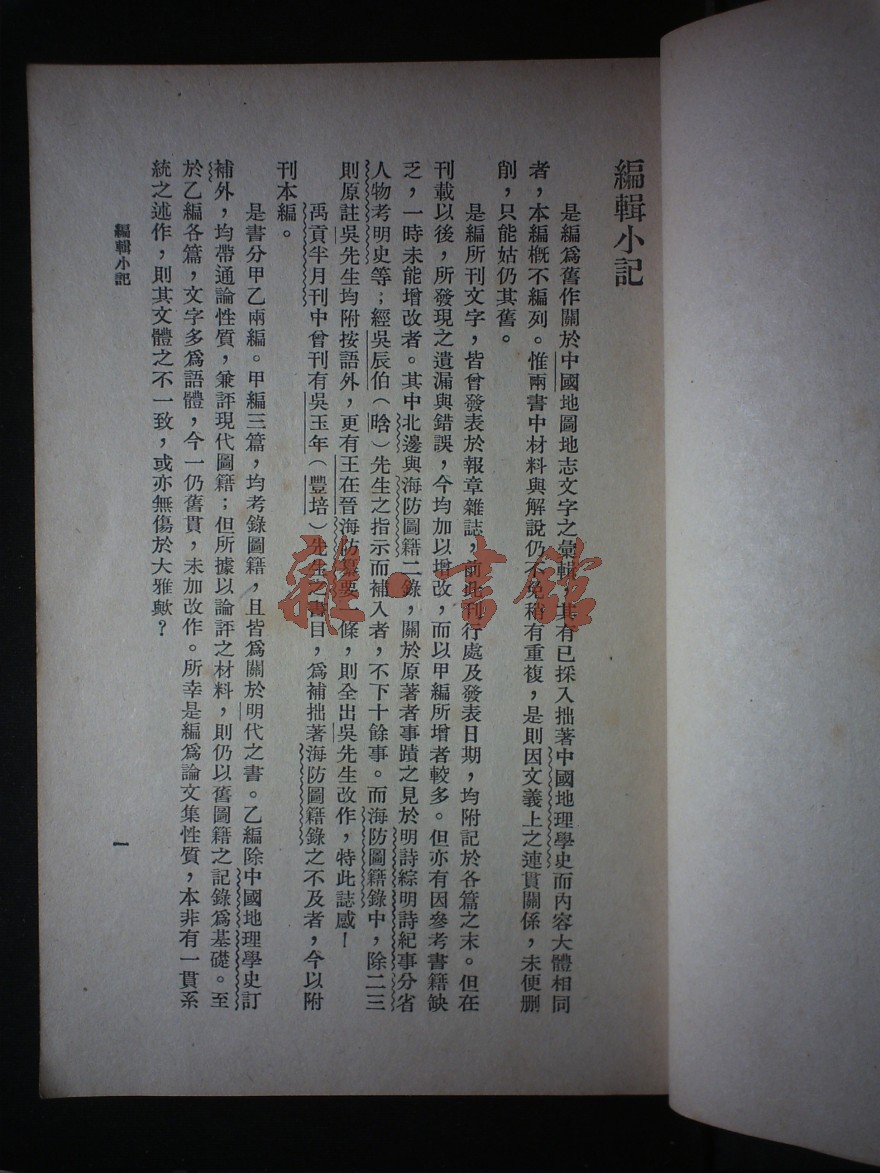 編輯小記
是編爲舊作關於中國地圖地志文字之彙輯，其有已採入拙著中國地理學史而內容大體相同
者，本編槪不編列。惟兩書中材料與解說仍不免稍有重複，是則因文義上之連貫關係，未便刪
削，只能姑仍其舊。
是編所刊文字，皆曾發表於報章雜誌，前此刊行處及發表日期，均附記於各篇之末。但在
刊載以後，所發現之遺漏與錯誤，今均加以增改，而以甲編所增者較多。但亦有因參考書籍缺
乏，一時未能增改者。其中北邊與海防圖籍二錄，關於原著者事蹟之見於明詩綜明詩紀事分省
人物考明史等；經吳辰伯（晗）先生之指示而補入者，不下十餘事。而海防圖籍錄中，除二三
則原註吳先生均附按語外，更有王在晉海防纂要一條，則全出吳先生改作，特此誌感！
禹貢半月刊中曾刊有吳玉年（豐培）先生之書目，爲補拙著海防圖籍錄之不及者，今以附
刊本編。
是書分甲乙兩編。甲編三篇，均考錄圖籍，且皆爲關於明代之書。乙編除中國地理學史訂
補外，均帶通論性質，兼評現代圖籍；但所據以論評之材料，則仍以舊圖籍之記錄爲基礎。至
於乙編各篇，文字多爲語體，今一仍舊貫，未加改作。所幸是編爲論文集性質，本非有一貫系
統之述作，則其文體之不一致，或亦無傷於大雅歟？
編輯小記
一
雜·書館